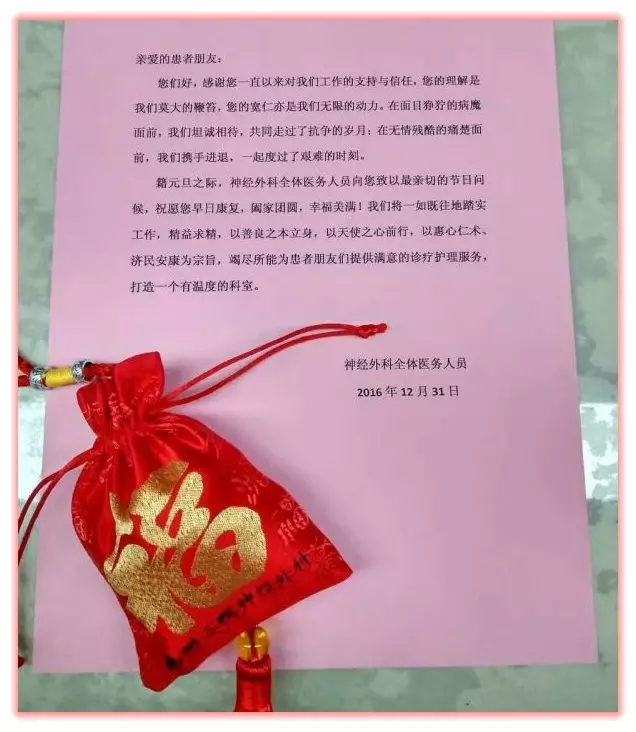 亲爱的患者朋友：
您们好，感谢您一直以来对我们工作的支持与信任，您的理解是
我们莫大的鞭笞，您的宽仁亦是我们无限的动力。在面目狰狞的病魔
面前，我们坦诚相待，共同走过了抗争的岁月；在无情残酷的痛楚面
前，我们携手进退，一起度过了艰难的时刻。
籍元旦之际，神经外科全体医务人员向您致以最亲切的节日问
候，祝愿您早日康复，阖家团圆，幸福美满！我们将一如既往地踏实
工作，精益求精，以善良之本立身，以天使之心前行，以惠心仁术、
济民安康为宗旨，竭尽所能为患者朋友们提供满意的诊疗护理服务，
打造一个有温度的科室。
神经外科全体医务人员
2016 年 12 月 31 日
福
神经外科